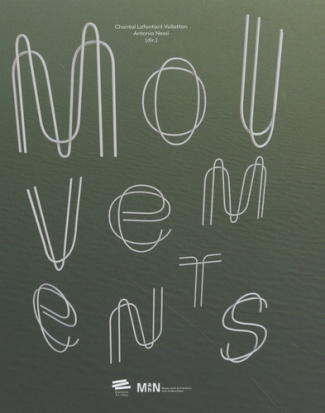 Chantal Lafontant Vallotton
Antonia Nessi
(dir.)
MoU
vem
eNTs
MahN